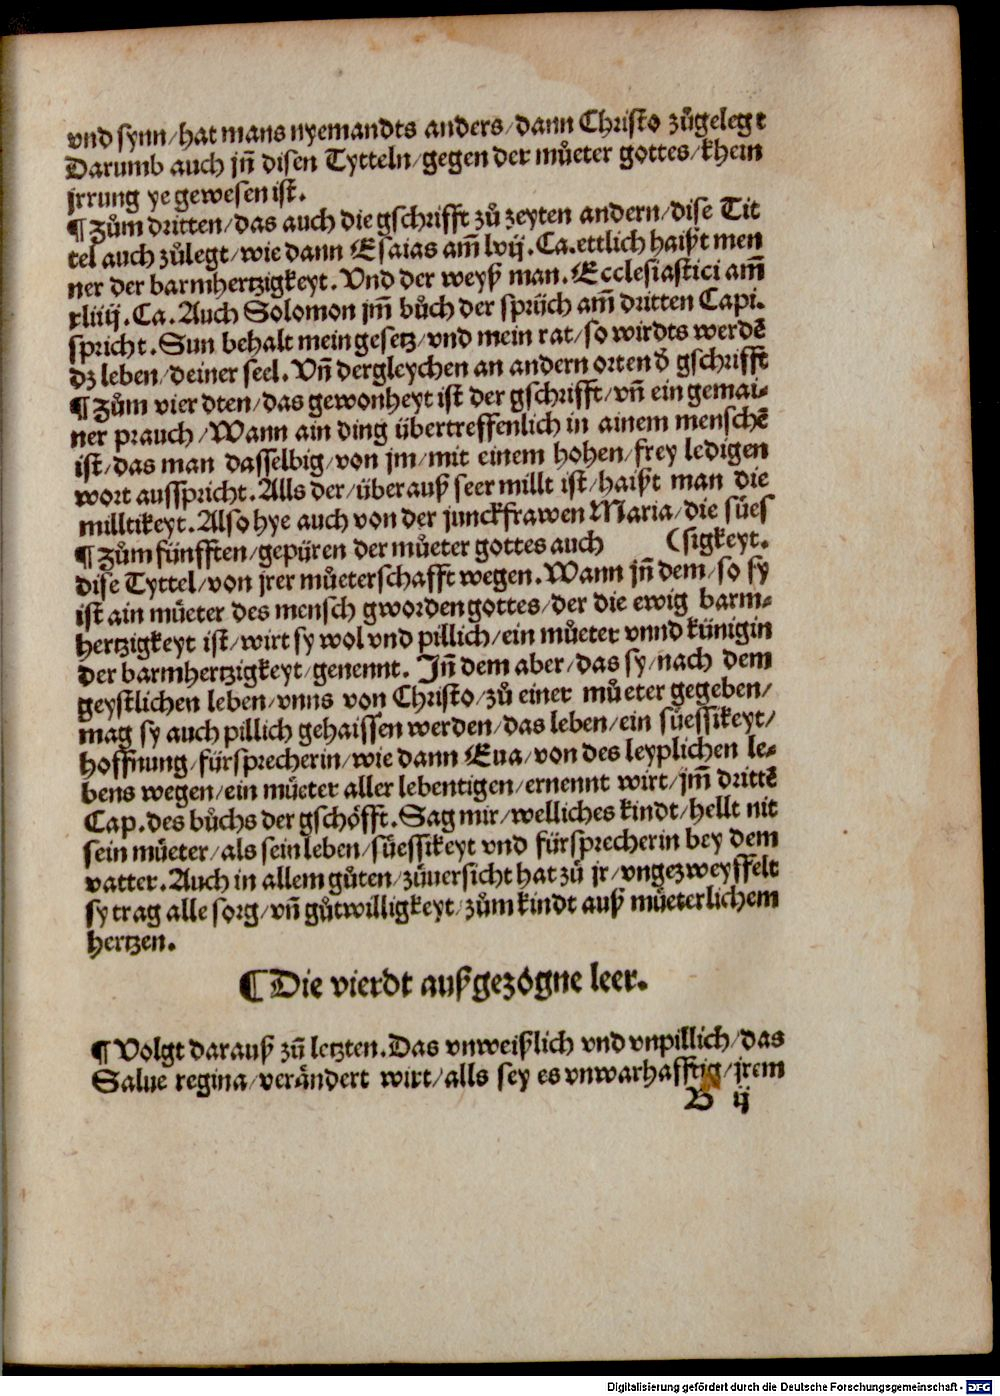 vnd synn/hat mans nyemandts anders/dann Christo zůgelegt
Darumb auch jñ disen Tytteln/gegen der můeter gottes/khein
jrrung ye gewesen ist.
¶ Zům dritten/das auch die gschrifft zů zeyten andern/dise Tit
tel auch zůlegt/wie dann Esaias am̃ lvij. Ca. ettlich haißt men
ner der barmhertzigkeyt. Vnd der weyß man. Ecclesiastici am̃
xliiij. Ca. Auch Solomon jm̃ bůch der sprüch am̃ dritten Capi.
spricht. Sun behalt mein gesetz/vnd mein rat/so wirdts werdē
dz leben/deiner seel. Vñ dergleychen an andern orten d̕ gschrifft
¶ Zům vierdten/das gewonheyt ist der gschrifft/vñ ein gemai-
ner prauch/Wann ain ding übertreffenlich in ainem menschē
ist/das man dasselbig/von jm/mit einem hohen/frey ledigen
wort ausspricht. Alls der/überauß seer millt ist/haißt man die
milltikeyt. Also hye auch von der junckfrawen Maria/die sües
¶ Zům fünfften/gepüren der můeter gottes auch (sigkeyt.
dise Tyttel/von jrer můeterschafft wegen. Wann jñ dem/so sy
ist ain můeter des mensch gworden gottes/der die ewig barm-
hertzigkeyt ist/wirt sy wol vnd pillich/ein můeter vnnd künigin
der barmhertzigkeyt/genennt. Jñ dem aber/das sy/nach dem
geystlichen leben/vnns von Christo/zů einer můeter gegeben/
mag sy auch pillich gehaissen werden/das leben/ein süessikeyt/
hoffnung/fürsprecherin/wie dann Eua/von des leyplichen le-
bens wegen/ein můeter aller lebentigen/ernennt wirt/jm̃ drittē
Cap. des bůchs der gschöfft. Sag mir/welliches kindt/hellt nit
sein můeter/als sein leben/süessikeyt vnd fürsprecherin bey dem
vatter. Auch in allem gůten/zůuersicht hat zů jr/vngezweyffelt
sy trag alle sorg/vñ gůtwilligkeyt/zům kindt auß můeterlichem
hertzen.
¶ Die vierdt außgezógne leer.
¶ Volgt darauß zů letzten. Das vnweißlich vnd vnpillich/das
Salue regina/verändert wirt/alls sey es vnwarhafftig/jrem
B ij
Digitalisierung gefördert durch die Deutsche Forschungsgemeinschaft - DFG